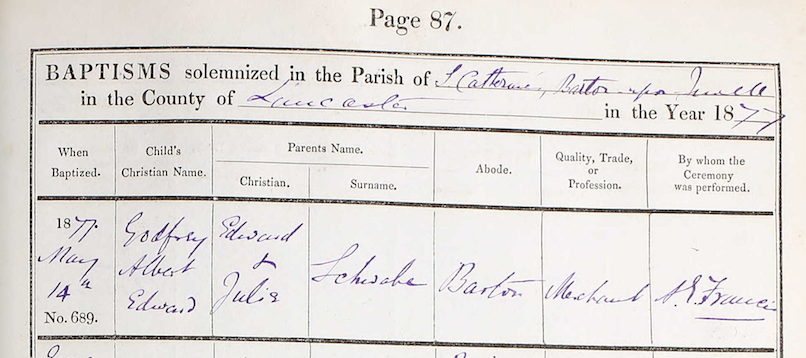 Page 87.
BAPTISMS solemnized in the Parish of S Catherine, Barton upon Irwell
in the County of Lancaster in the Year 1877
When Baptized.
Child's Christian Name.
Parents Name.
Christian.
Surname.
Abode.
Quality, Trade, or Profession.
By whom the Ceremony was performed.
1877.
May
14th
No. 689.
Godfrey
Albert
Edward
Edward
&
Julia
Schwabe
Barton
Merchant